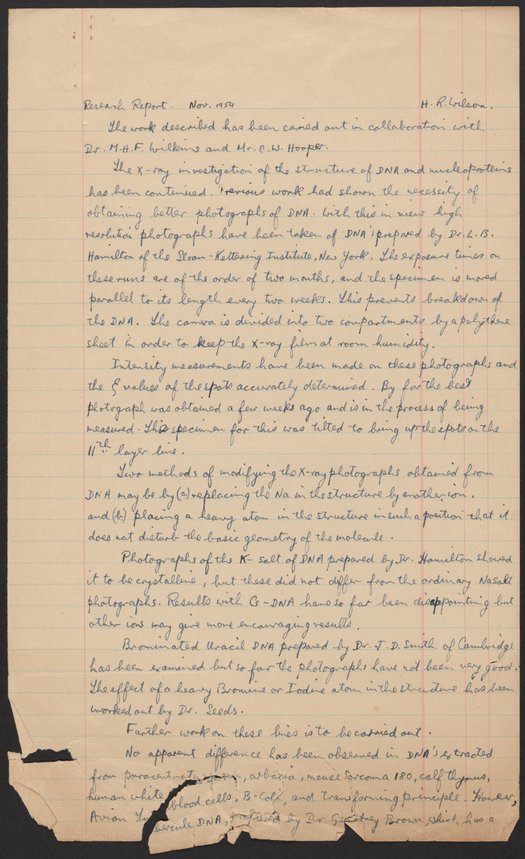 Research Report. Nov. 1954 H. R. Wilson.
The work described has been carried out in collaboration with
Dr. M.H.F. Wilkins and Mr. C.W. Hooper.
The X-ray investigation of the structure of DNA and nucleoproteins
has been continued. Previous work had shown the necessity of
obtaining better photographs of DNA. With this in view high
resolution photographs have been taken of DNA's prepared by Dr. L.D.
Hamilton of the Sloan-Kettering Institute, New York. The exposure times on
these runs are of the order of two months, and the specimen is moved
parallel to its length every two weeks. This prevents breakdown of
the DNA. The camera is divided into two compartments by a polythene
sheet in order to keep the X-ray film at room humidity.
Intensity measurements have been made on these photographs and
the ξ values of the spots accurately determined. By far the best
photograph was obtained a few weeks ago and is in the process of being
measured. The specimen for this was tilted to bring up the spots on the
11th layer line.
Two methods of modifying the X-ray photographs obtained from
DNA may be by (a) replacing the Na in the structure by another ion,
and (b) placing a heavy atom in the structure in such a position that it
does not disturb the basic geometry of the molecule.
Photographs of the K- salt of DNA prepared by Dr. Hamilton showed
it to be crystalline, but these did not differ from the ordinary Na salt
photographs. Results with Cs-DNA have so far been disappointing but
other ions may give more encouraging results.
Brominated Uracil DNA prepared by Dr. J.D. Smith of Cambridge
has been examined but so far the photographs have not been very good.
The effect of a heavy Bromine or Iodine atom in the structure has been
worked out by Dr. Seeds.
Further work on these lines is to be carried out.
No apparent difference has been observed in DNA's extracted
from arbacia, mouse Sarcoma 180, calf thymus,
human white blood cells, B-Coli, and transforming principle. However,
Avian DNA, by Dr. Brown which has a